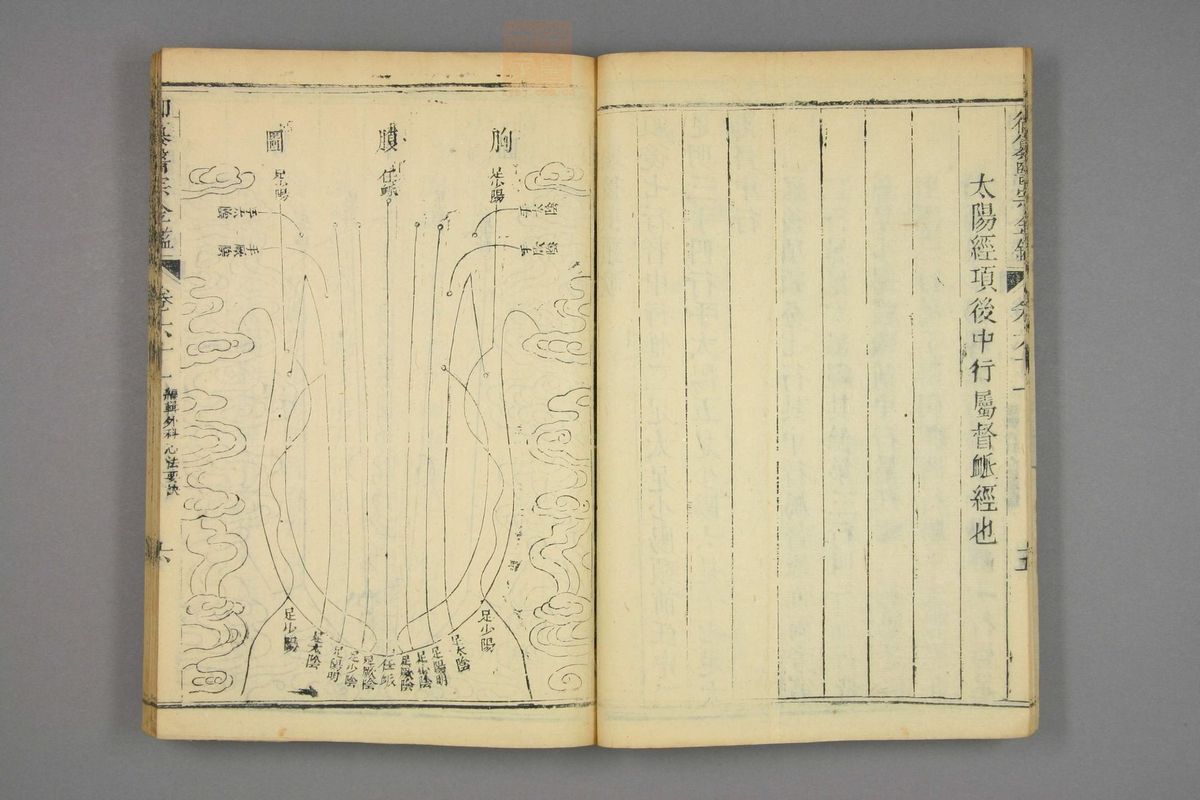 太陽經項後中行屬督脈經也
御纂醫宗金鑑
卷六十一
胸膜圖
足少陽
任脈
足少陽
手太陰
手厥陰
御纂醫宗金鑑
卷六十一
編輯外科心法要訣
六
足少陽
足太陰
足陽明
足少陰
足厥陰
任脈
足厥陰
足少陰
足陽明
足太陰
足少陽